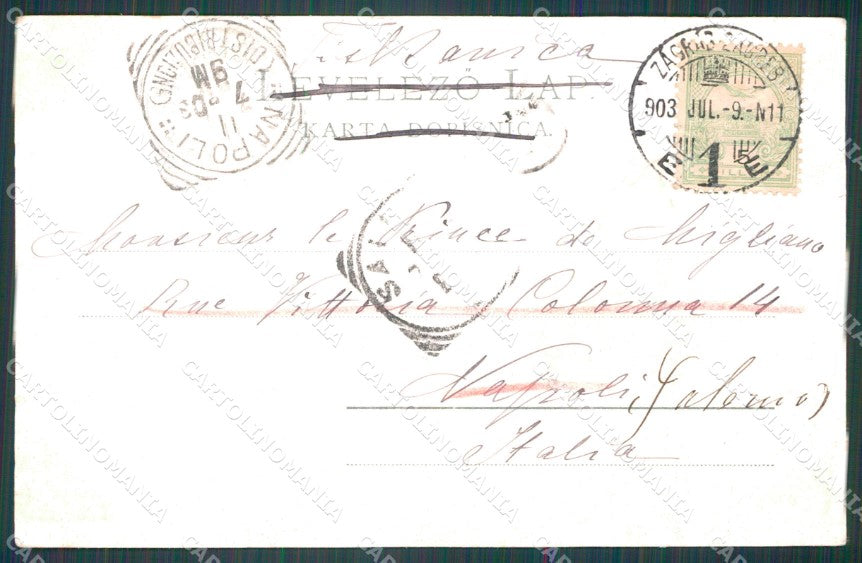 LEVELEZŐ LAP.
KARTA DOPISNICA.
NAPOLI (DISTRIBUZIONE)
11
7 03
9M
ZÁGRÁB ZAGREB
903 JUL.-9.-N11
1
E E
Monsieur le Prince de Migliano
Rue Vittoria Colonna 14
Napoli (Salerno)
Italia
CARTOLINOMANIA